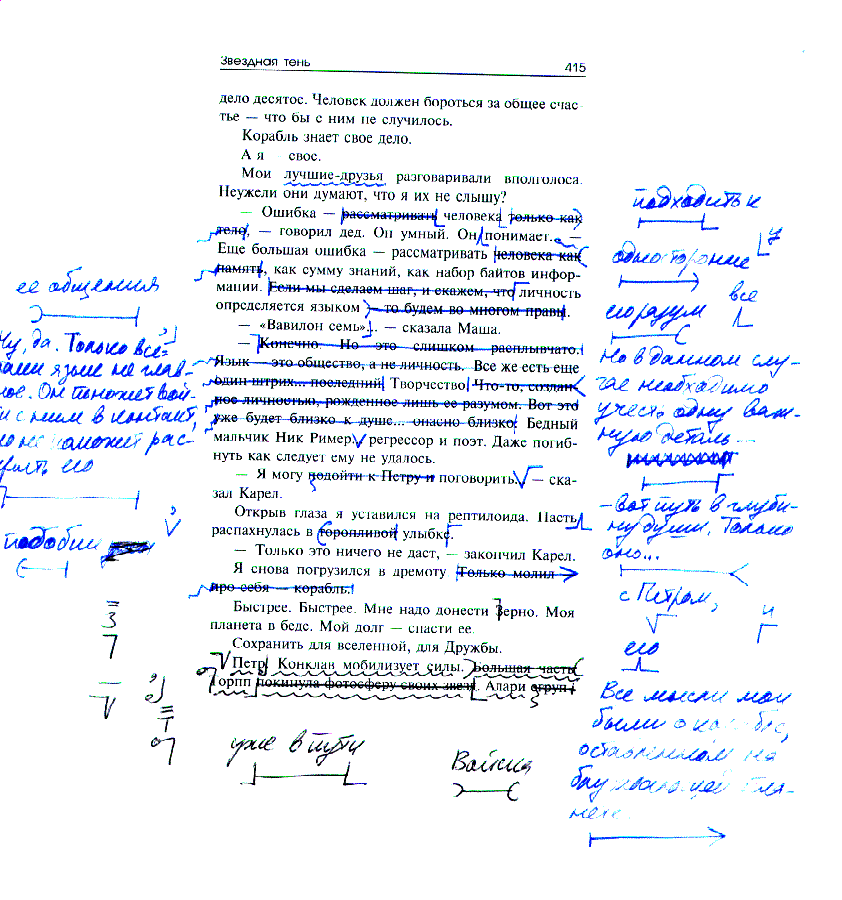 Звездная тень 415
дело десятое. Человек должен бороться за общее счас-
тье — что бы с ним не случилось.
Корабль знает свое дело.
А я свое.
Мои лучшие-друзья разговаривали вполголоса.
Неужели они думают, что я их не слышу?
— Ошибка — рассматривать человека только как
тело, — говорил дед. Он умный. Он понимает. —
Еще большая ошибка — рассматривать человека как
память, как сумму знаний, как набор байтов инфор-
мации. Если мы сделаем шаг, и скажем, что личность
определяется языком — то будем во многом правы.
— «Вавилон семь»... — сказала Маша.
— Конечно. Но это слишком расплывчато.
Язык — это общество, а не личность. Все же есть еще
один штрих... последний. Творчество. Что-то, создан-
ное личностью, рожденное лишь ее разумом. Вот это
уже будет близко к душе... опасно близко! Бедный
мальчик Ник Ример, регрессор и поэт. Даже погиб-
нуть как следует ему не удалось.
— Я могу подойти к Петру и поговорить. — ска-
зал Карел.
Открыв глаза я уставился на рептилоида. Пасть
распахнулась в торопливой улыбке.
— Только это ничего не даст, — закончил Карел.
Я снова погрузился в дремоту. Только молил
про себя — корабль!
Быстрее. Быстрее. Мне надо донести Зерно. Моя
планета в беде. Мой долг — спасти ее.
Сохранить для вселенной, для Дружбы.
Петр! Конклав мобилизует силы. Большая часть
Торпп покинула фотосферу своих звезд. Алари сгруп-
ее общения
Ну, да. Только все=
язык не глав-
ное. Он поможет вой-
ти с ним в контакт,
но не поможет рас-
крыть его
подобии
=
З
7
Т
подходить к
односторонне
все
его разум
Но в данном слу-
чае необходимо
учесть одну важ-
ную деталь —
— вот путь в глуби-
ну души. Только
оно...
с Петром,
и
его
Все мысли мои
были о корабле,
оставленном на
пла-
нете.
уже в пути
Войска